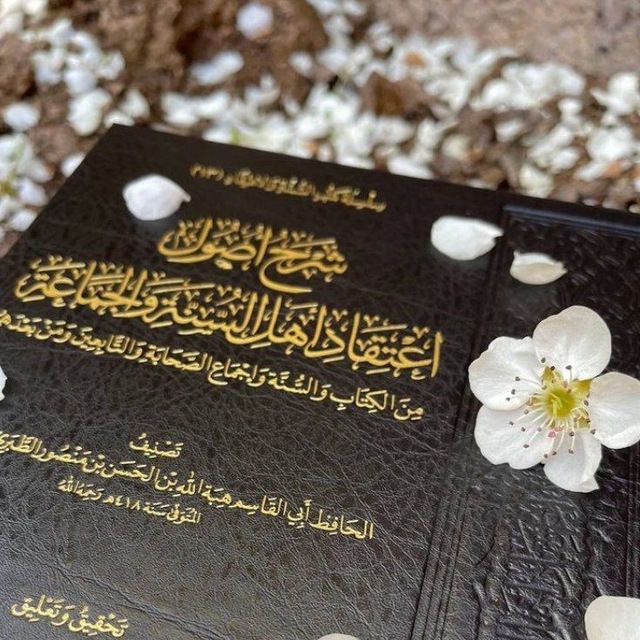 شَرْحُ أُصُولِ
اعْتِقَادِ أَهْلِ السُّنَّةِ وَالْجَمَاعَةِ
مِنَ الْكِتَابِ وَالسُّنَّةِ وَإِجْمَاعِ الصَّحَابَةِ وَالتَّابِعِينَ وَمَنْ بَعْدَهُمْ
تَصْنِيفُ
الحَافِظِ أَبِي القَاسِمِ هِبَةِ اللهِ بْنِ الحَسَنِ بْنِ مَنْصُورٍ الطَّبَرِيِّ
المُتَوَفَّى سَنَةَ ٤١٨هـ رَحِمَهُ اللهُ
تَحْقِيقُ وَتَعْلِيقُ